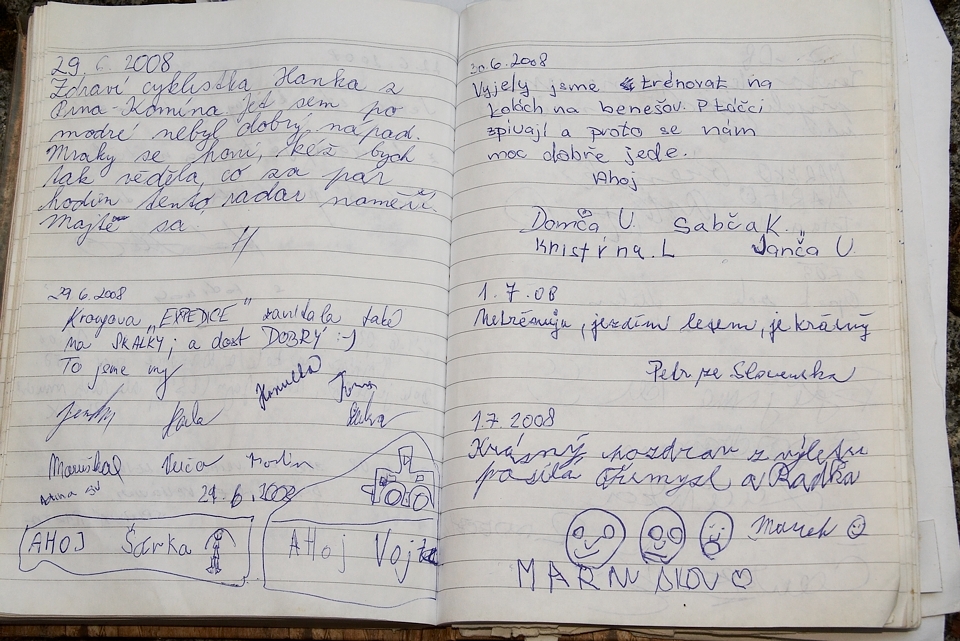 29. 6. 2008
Zdraví cyklistka Hanka z
Brna-Komína jet sem po
modré nebyl dobrý nápad.
Mraky se honí, kéž bych
tak věděla, co za pár
hodin tento radar naměří.
Majte sa
H
29 6. 2008
"EXPEDICE" zavítala také
na SKALKY; a dost DOBRÝ :-)
To jsme my
Jenda
Hanička
Maruška
Verča Martin
29. 6. 2008
AHOJ Šárka
AHoj Vojta
30.6.2008
Vyjely jsme trénovat na
kolách na benešov. Ptáčci
zpívají a proto se nám
moc dobře jede.
Ahoj
Domča U. Sabča K.
Kristýna. L Janča U.
1. 7. 08
Netrénuju, jezdím lesem, je krásný
Petr ze Slovenska
1.7. 2008
Krásný pozdrav z výletu
posílá Přemysl a Radka
Marek